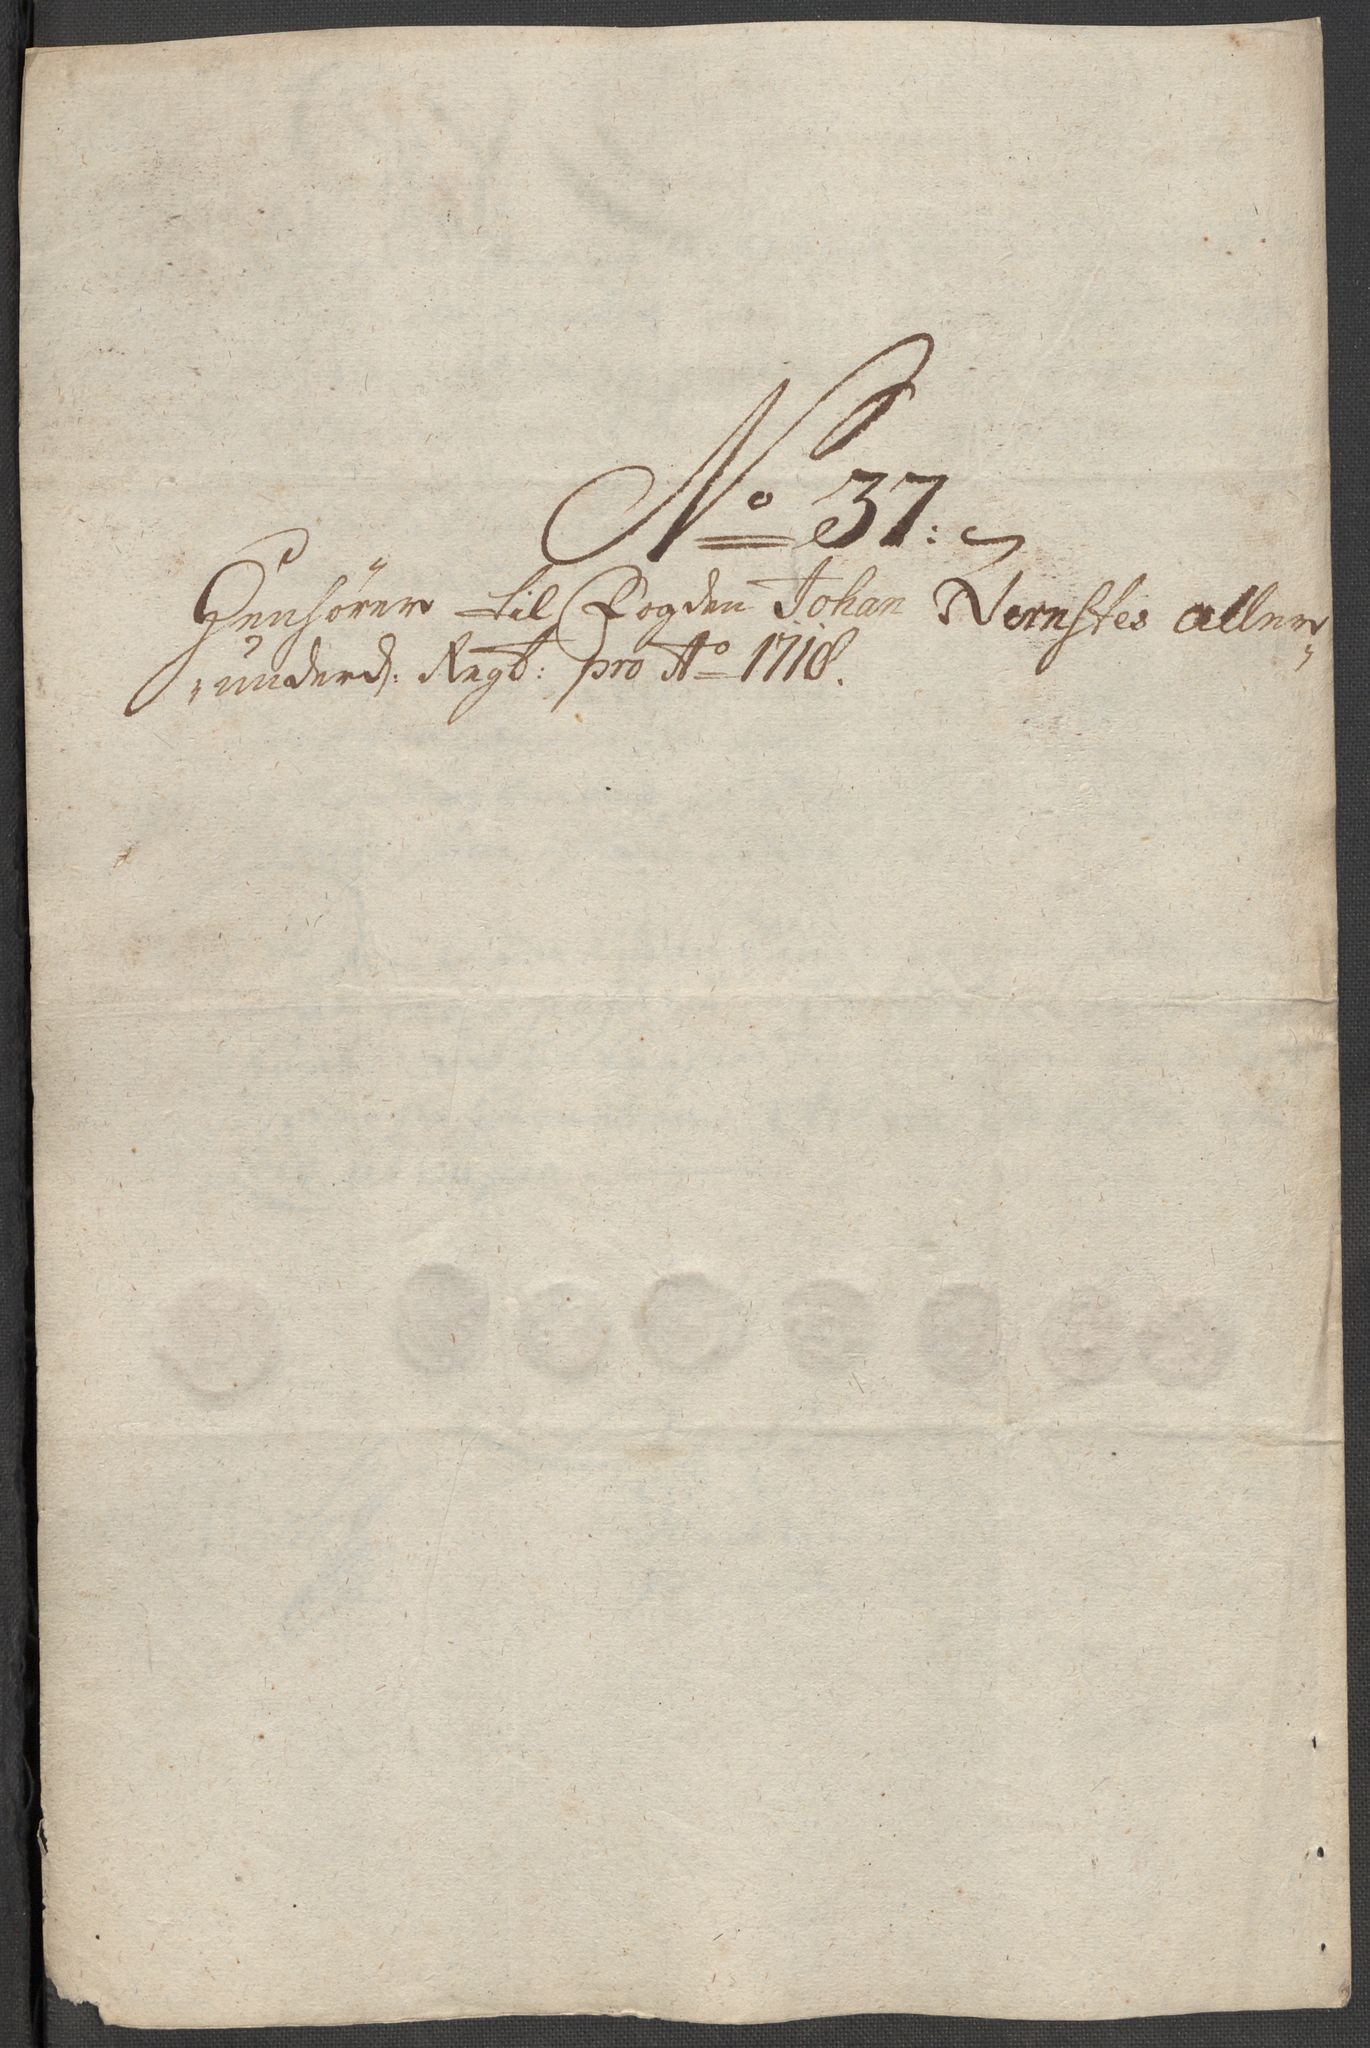 No 37:
Henhörer til Fogden Johan Nernstes aller
underd: Regt: pro Ao 1718.